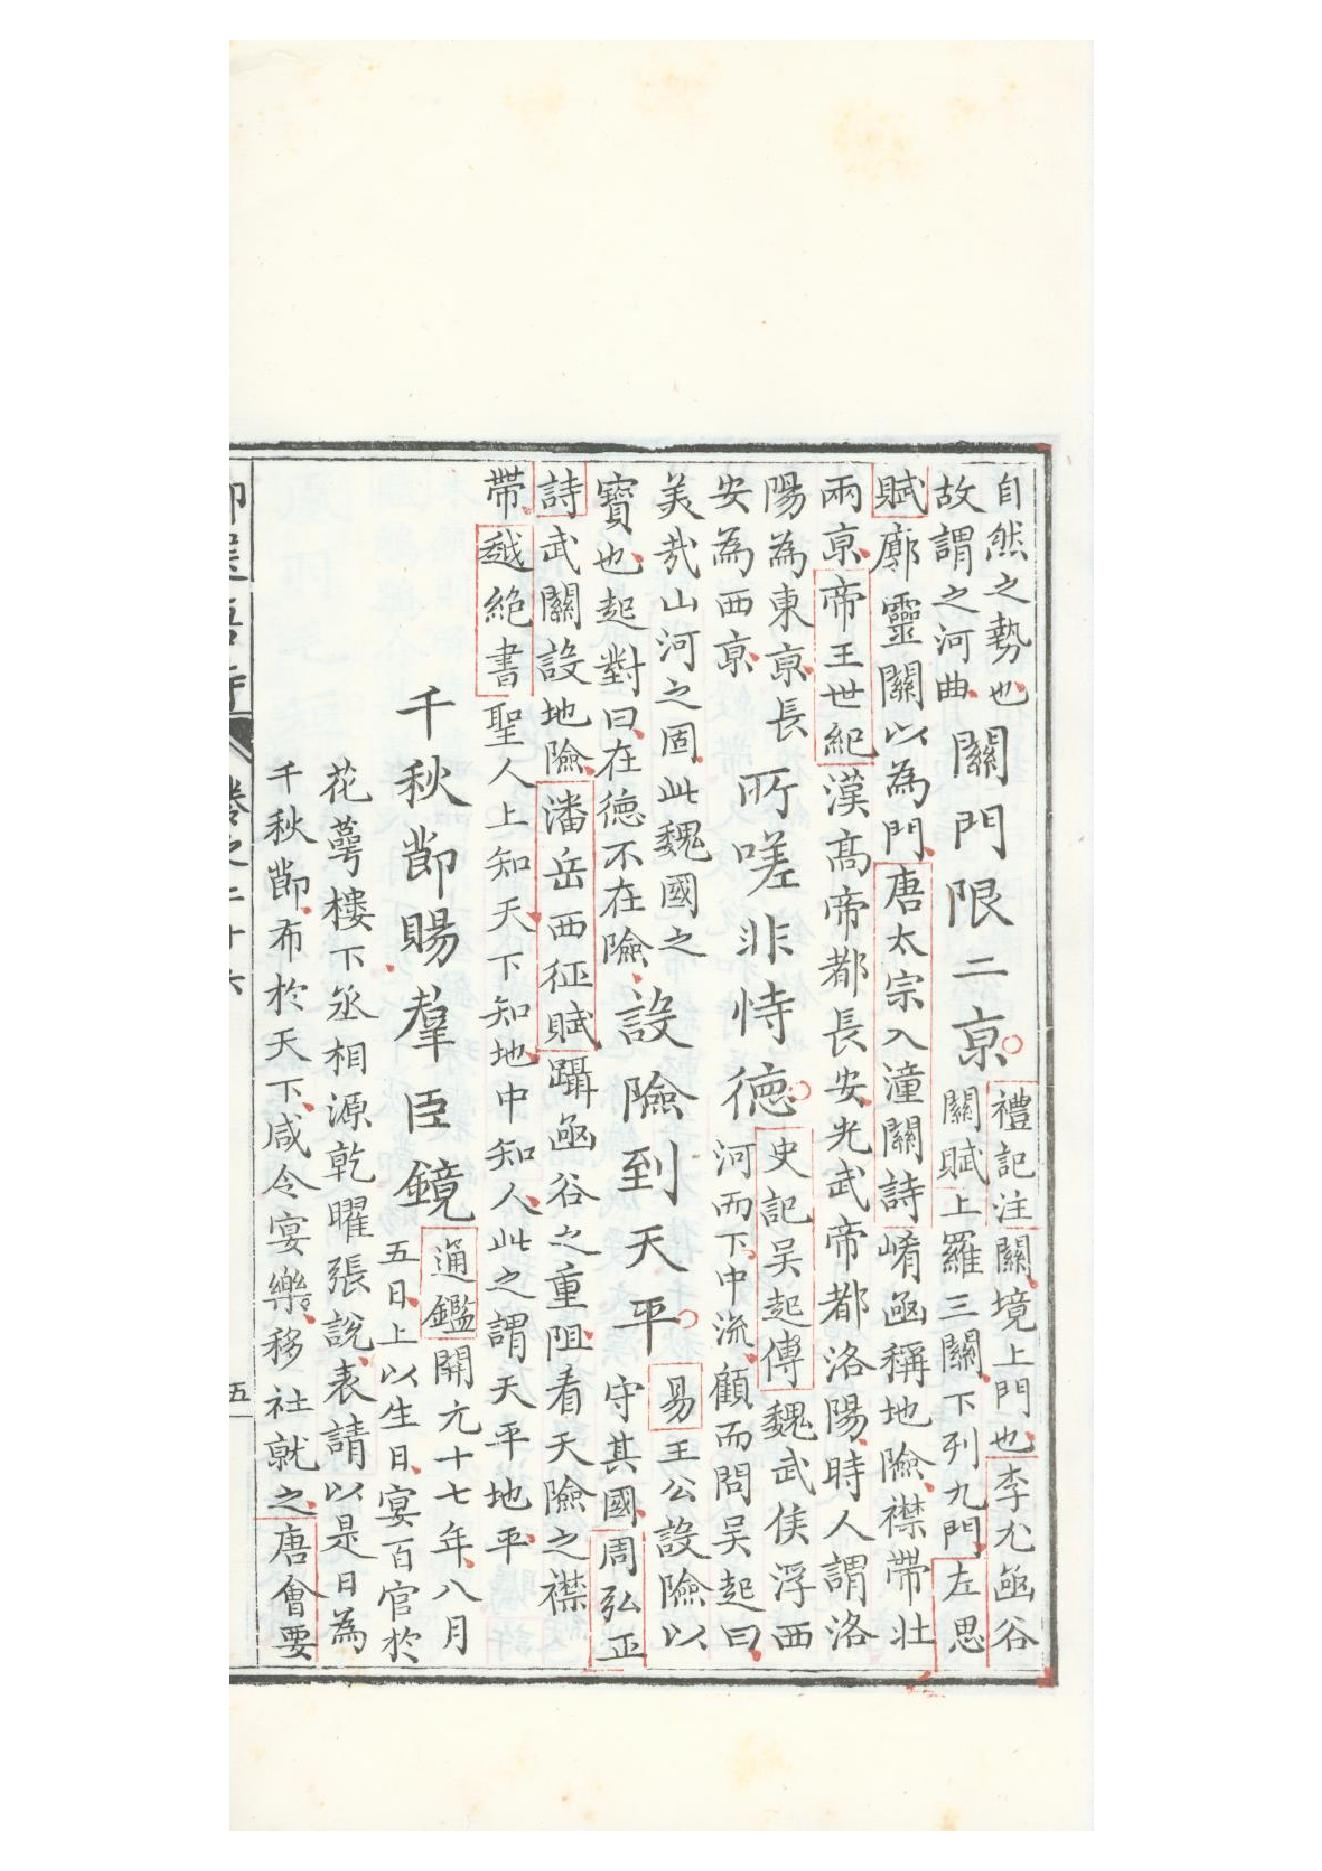 自然之勢也
故謂之河曲
關門限二京
禮記注關境上門也李尤函谷
關賦上羅三關下列九門左思
賦廓靈關以為門唐太宗入潼關詩崤函稱地險襟帶壯
兩京帝王世紀漢高帝都長安光武帝都洛陽時人謂洛
陽為東京長
安為西京
所嗟非恃德
史記吳起傳魏武侯浮西
河而下中流顧而問吳起曰
美哉山河之固此魏國之
寶也起對曰在德不在險
設險到天平
易王公設險以
守其國周弘正
詩武關設地險潘岳西征賦躡函谷之重阻看天險之襟
帶越絕書聖人上知天下知地中知人此之謂天平地平
千秋節賜羣臣鏡
通鑑開元十七年八月
五日上以生日宴百官於
花萼樓下丞相源乾曜張說表請以是日為
千秋節布於天下咸令宴樂移社就之唐會要
卷之二十六
五